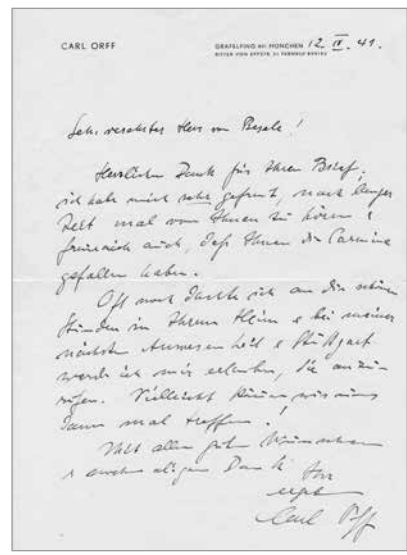 CARL ORFF
GRÄFELFING BEI MÜNCHEN 12. IV. 41.
RITTER VON EPPSTR.
Sehr verehrter Herr von
Herzlichen Dank für Ihren Brief,
ich habe mich sehr gefreut, nach langer
Zeit mal von Ihnen zu hören &
auch, daß Ihnen die Carmina
gefallen haben.
Oft noch dachte ich an die schönen
Stunden in Ihrem Heim & bei meiner
nächsten Anwesenheit Stuttgart
werde ich mir erlauben, Sie anzu-
rufen. Vielleicht können wir uns
dann mal treffen!
Mit allen guten Wünschen
& Dank Ihr
Carl Orff